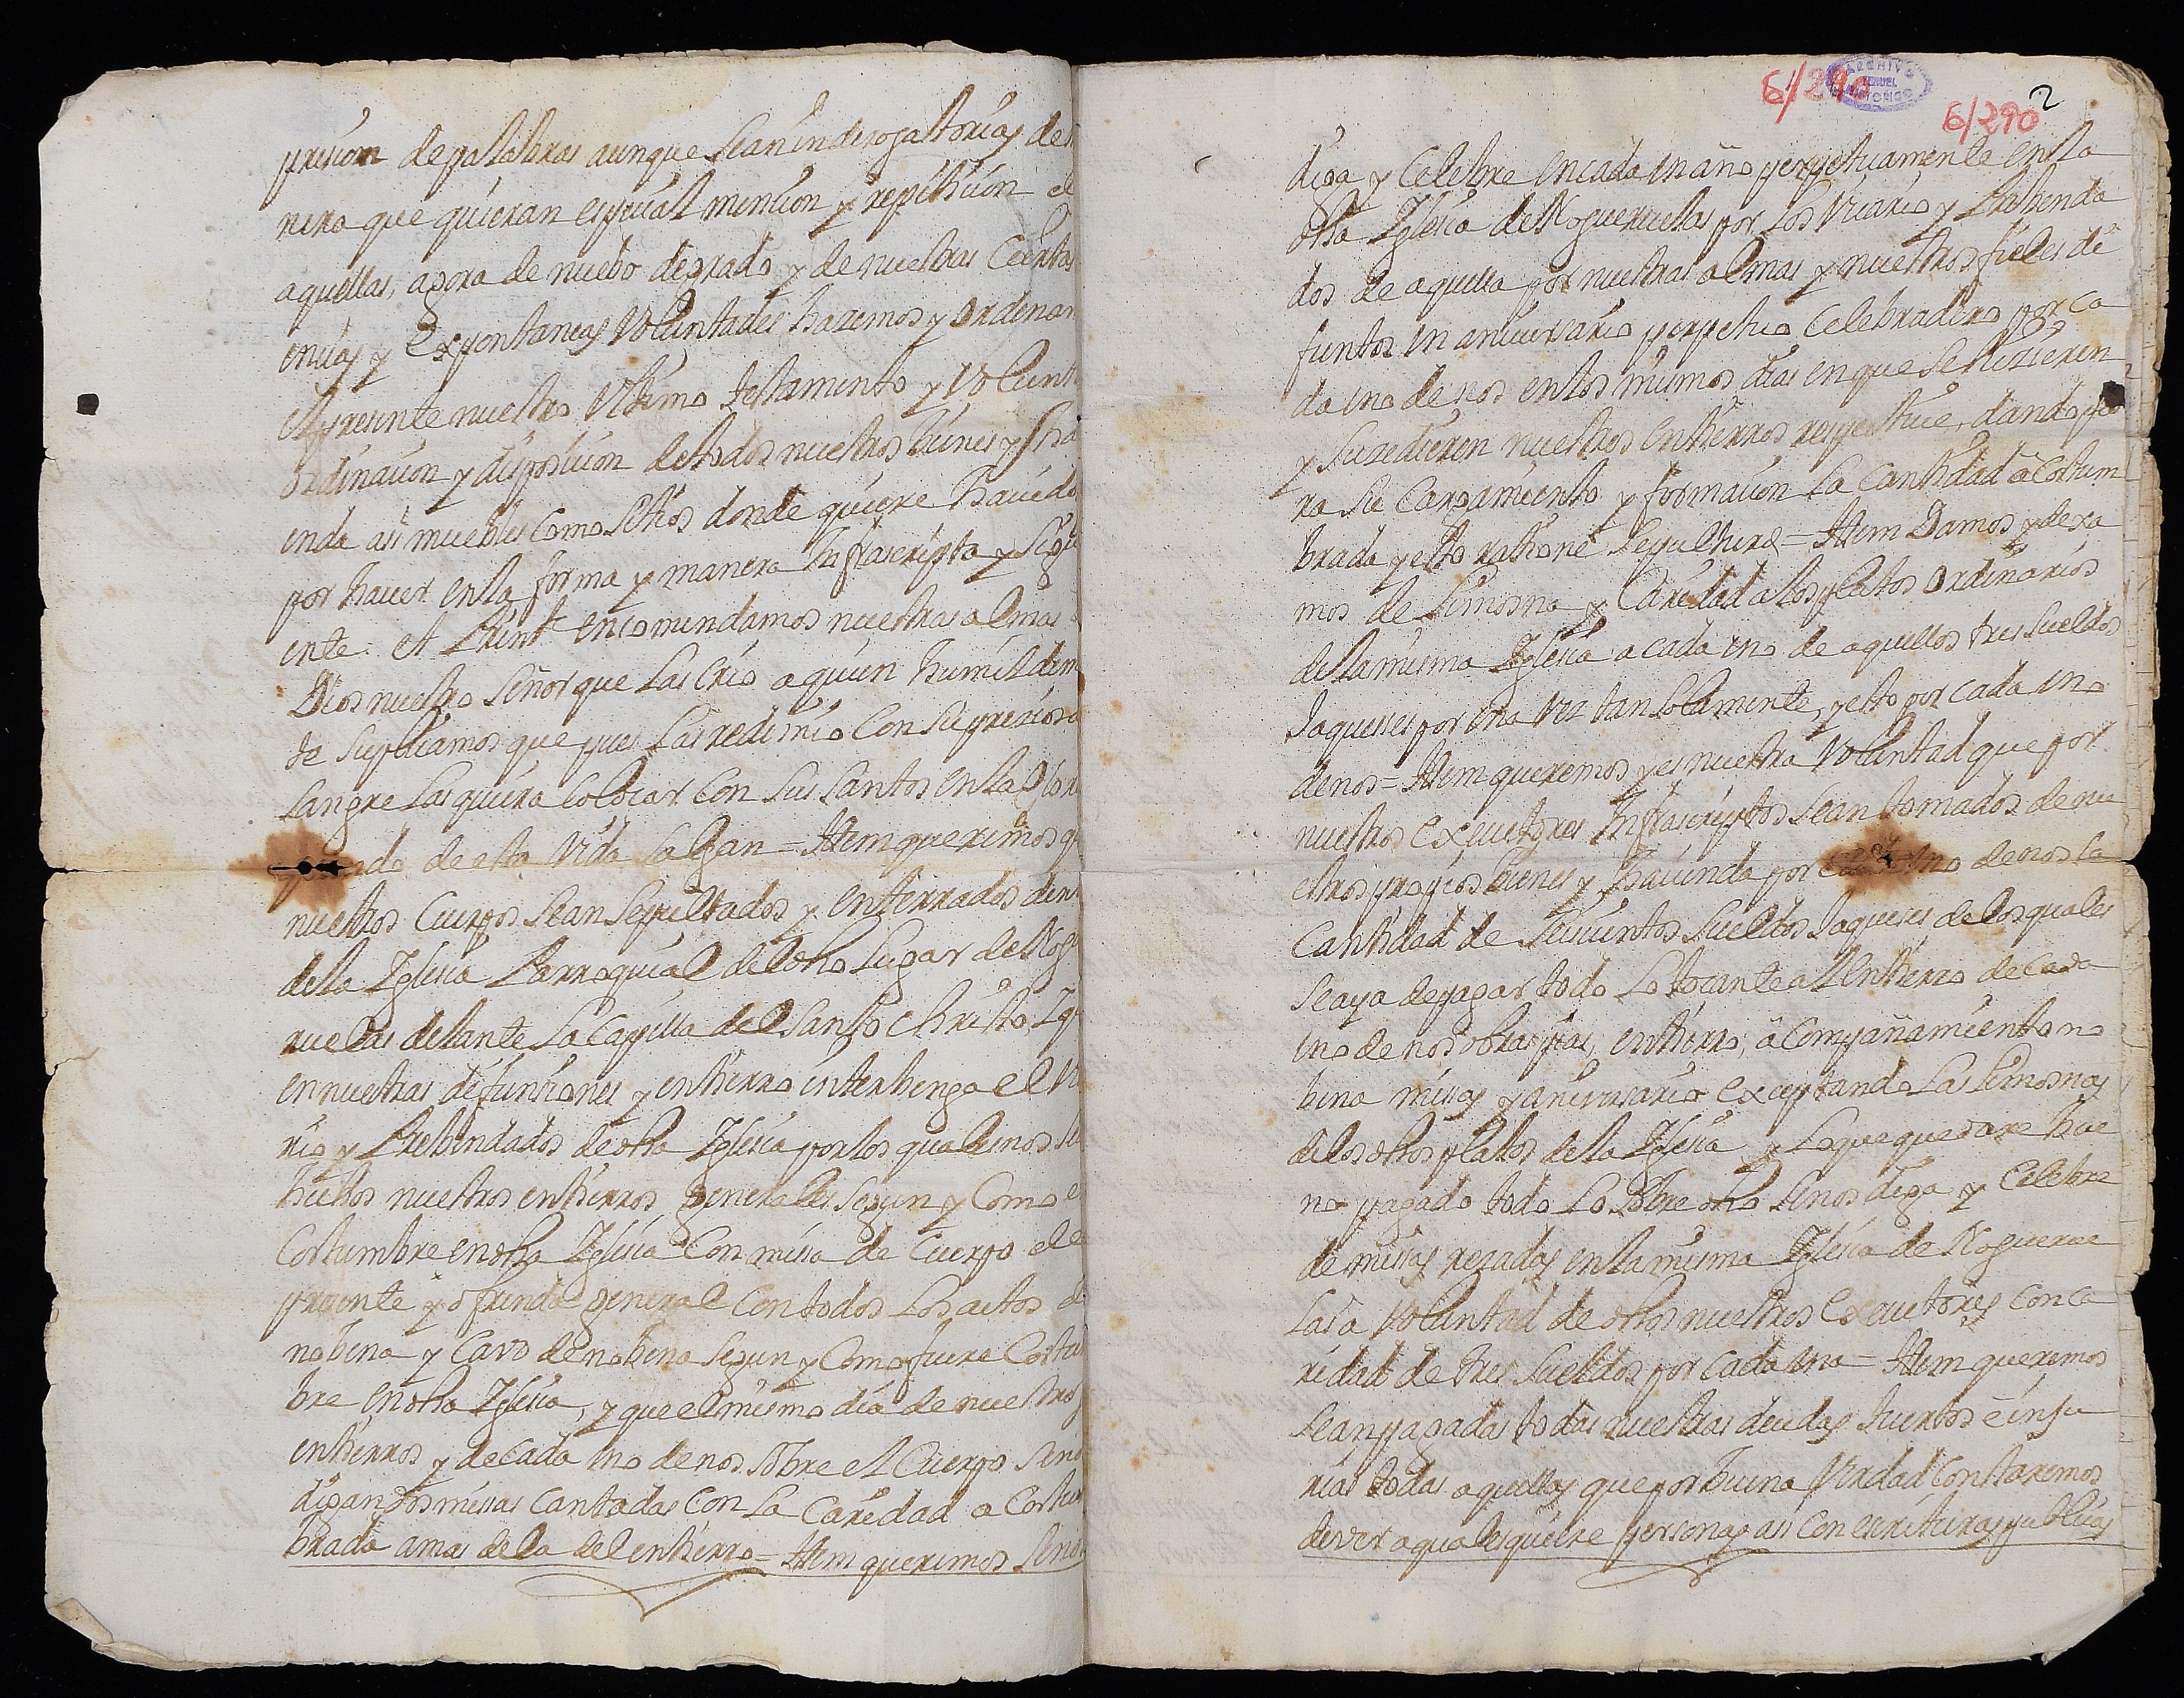 presiom de palabras aunque sean inderogatorias de
nera que quieran especial mencion y repeticion
aquellas, agora de nuebo de grado y de nuestras ciertas
encias y expontaneas voluntades hazemos y ordenam
el presente nuestro ultimo testamento y volunt
ordinacion y disposicion de todos nuestros bienes y
enda asi muebles como sitios donde quiere havido
por haver en la forma y manera infrascripta y sigui
ente. et Primt encomendamos nuestras almas a
Dios nuestro señor que las crio a quien humildem
te suplicamos que pues las redimio con su preciosa
sangre las quiera colocar con sus santos en la glori
de esta vida salgan = Item queremos q
nuestros cuerpos sean sepultados y enterrados den
de la Iglesia Parroquial del dho Lugar de Nog
ruelas delante la capilla del santo christo Iq
en nuestras defunsiones y entierro interbenga el vi
rio y Prebendados de dha Iglesia por los quales nos
hechos nuestros entierros generales segun y como e
costumbre en dha Iglesia con misa de cuerpo
presente y ofrenda general con todos los actos d
nobena y cavo de nobena segun y como fuere costu
bre en dha Iglesia, y que el mismo dia de nuestros
entierros y de cada uno de nos sobre el cuerpo se nos
digan dos misas cantadas con la caridad a costu
brada a mas de la del entierro = Item queremos se nos
6/290
ARCHIVO
TERUEL
HISTORICO
6/290
2
diga y celebre en cada un año perpetuamente en la
dha Iglesia de Nogueruelas por los Vicario y Prebenda
dos de aquella por nuestras almas y nuestros fieles de
funtos un aniversario perpetuo celebradero por ca
da uno de nos en los mismos dias en que se hizieren
y sucedieren nuestros entierros respective, dando pa
ra su cargamiento y formacion la cantidad acostum
brada y esto rathione sepulture = Item Damos y dexa
mos de limosna y caridad a los platos ordinarios
de la misma Iglesia a cada uno de aquellos tres sueldos
Jaqueses por una vez tan solamente, y esto por cada uno
de nos = Item queremos y es nuestra voluntad que por
nuestros executores infrascriptos sean tomados de nu
estros propios bienes y hacienda por cada uno de nos la
cantidad de sueldos Jaqueses de los quales
se aya de pagar todo lo tocante al entierro de cada
uno de nos obras pias, entierro, acompañamiento no
bena misas y aniversario exceptando las limosnas
de los dhos platos de la Iglesia y lo que quedare bue
no pagado todo lo sobre dho se nos diga y celebre
de misas rezadas en la misma Iglesia de Noguerue
las a voluntad de dhos nuestros executores con ca
ridad de tres sueldos por cada una = Item queremos
sean pagadas todas nuestras deudas tuertos e inju
rias todas aquellas que por buena verdad constaremos
dever a qualesquiere personas asi con escrituras publicas